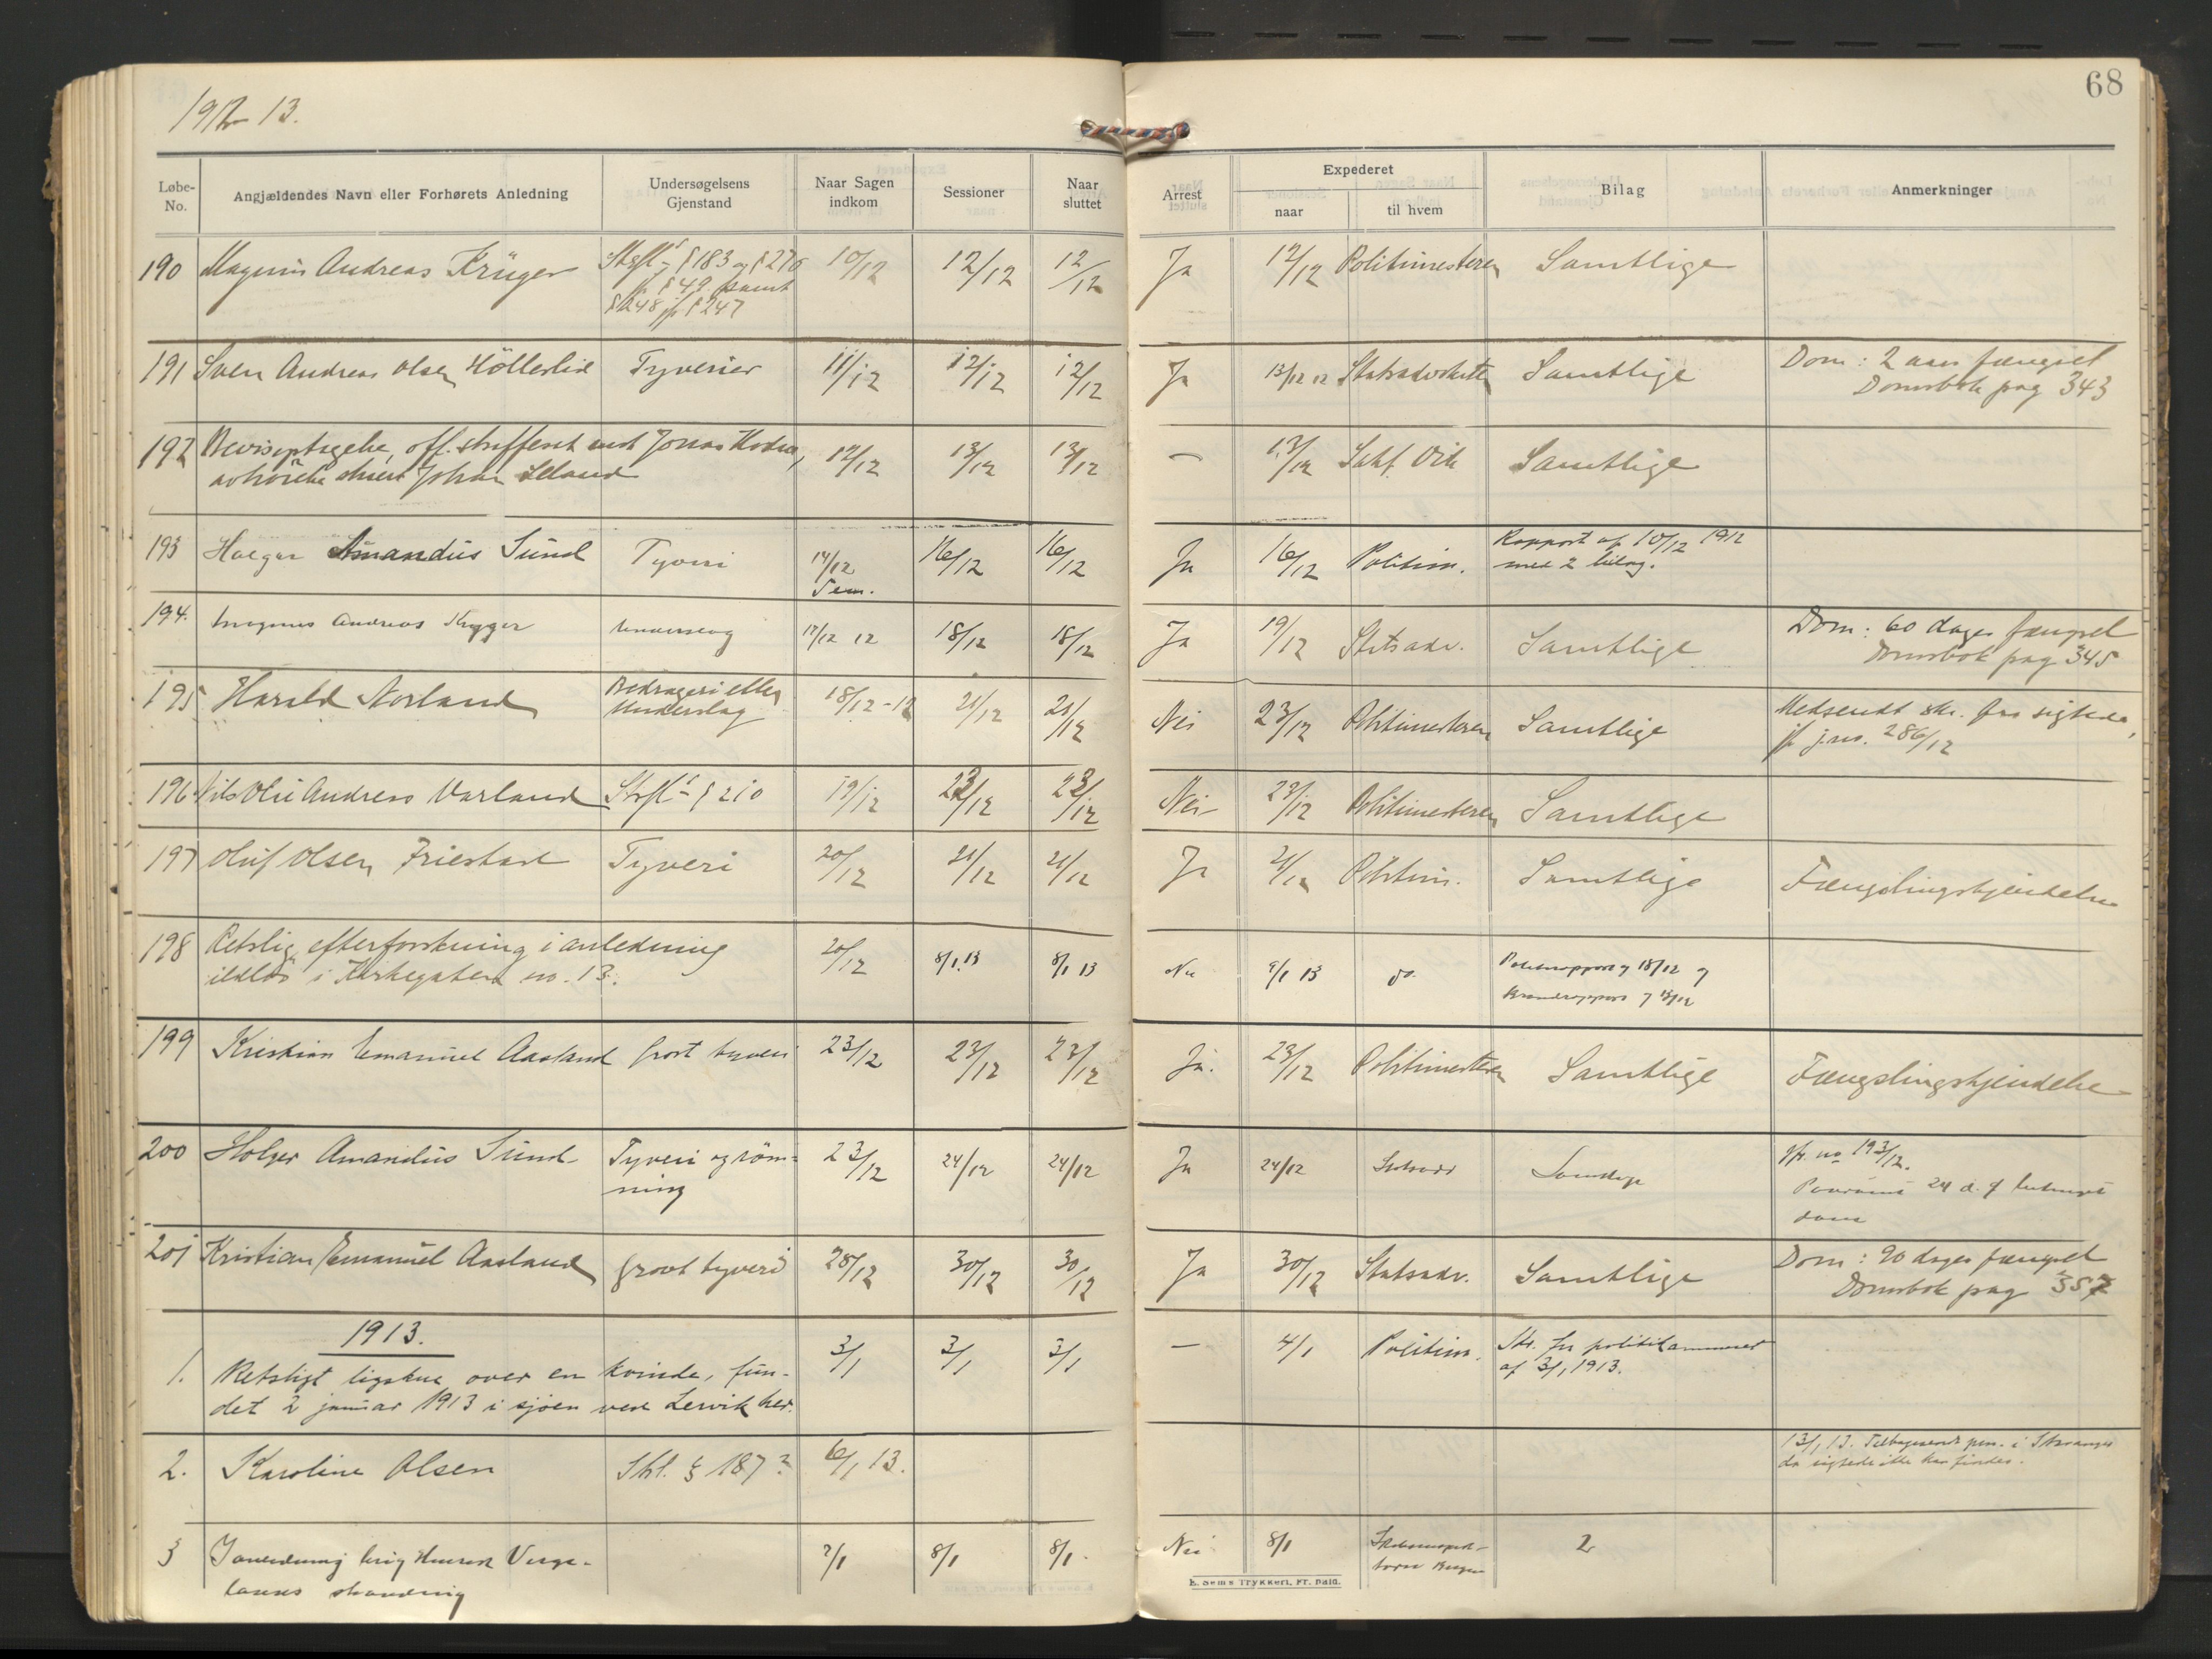 68
1912-13.
Løbe-No. Angjældendes Navn eller Forhørets Anledning Undersøgelsens Gjenstand Naar Sagen indkom Sessioner Naar sluttet Arrest Expederet naar til hvem Bilag Anmerkninger
190 Magnus Andreas Krüger § 183 og § 276 10/12 12/12 12/12 Ja 12/12 Politimesteren Samtlige
§ 49 samt
§ 248 jfr § 247
191 Sven Andreas Olsen Höllerlid Tyverier 11/12 12/12 12/12 Ja 13/12 12 Statsadvokaten Samtlige Dom: 2 aars fængsel
Domsbok pag 343
192 Bevisoptagelse, off. straffesak mot Jonas 12/12 13/12 13/12 — 13/12 Samtlige
Johan
193 Holger Amandus Sund Tyveri 14/12 16/12 16/12 Ja 16/12 Politim. Rapport af 10/12 1912
med 2 bilag.
194. Magnus Andreas Kryger Underslag 17/12 12 18/12 18/12 Ja 19/12 Statsadv. Samtlige Dom: 60 dages fængsel
Domsbok pag 345
195 Harald Norland Bedrageri eller 18/12-12 21/12 21/12 Nei 23/12 Politimesteren Samtlige Medsendt skr. fra sigtede,
Underslag jfr j.no. 286/12
196 Nils Olai Andreas Varland § 210 19/12 23/12 23/12 Nei 23/12 Politimesteren Samtlige
197 Oluf Olsen Friestad Tyveri 20/12 21/12 21/12 Ja 21/12 Politim. Samtlige Fængslingskjendelse
198 Retslig efterforskning i anledning 20/12 8/1 13 8/1 13 Nei 9/1 13 do. Politirapport 18/12
i Kirkegaten no. 13.
199 Kristian Emanuel Aasland grovt tyveri 23/12 23/12 23/12 Ja. 23/12 Politimesteren Samtlige Fængslingskjendelse
200 Holger Amandus Sund Tyveri og röm- 23/12 24/12 24/12 Ja 24/12 Statsadv Samtlige Jfr. no 193/12.
ning 24 d. f
dom
201 Kristian Emanuel Aasland grovt tyveri 28/12 30/12 30/12 Ja 30/12 Statsadv. Samtlige Dom: 90 dages fængsel
Domsbok pag 357
1913.
1. Retsligt ligskue over en kvinde, fun- 3/1 3/1 3/1 — 4/1 Politim. Skr. fra politikammeret
det 2 januar 1913 i sjöen ved Lervik her. af 3/1 1913.
2. Karoline Olsen Strl. § 187? 6/1 13. 13/1 13. Tilbagesendt i Stavanger
da sigtede ikke kan findes.
3 I anledning brig Henrik Werge- 7/1 8/1 8/1. Nei 8/1 2
lands stranding
E. Sems Trykkeri, Fr. hald.